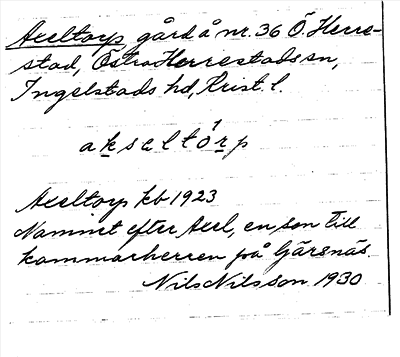 Axeltorp gård å nr. 36 Ö. Herre-
stad, Östra Herrestads sn,
Ingelstads hd, Krist. l.
akseltórp
Axeltorp kb 1923
Namnet efter Axel, en son till
kammarherren på Gärsnäs.
Nils Nilsson 1930